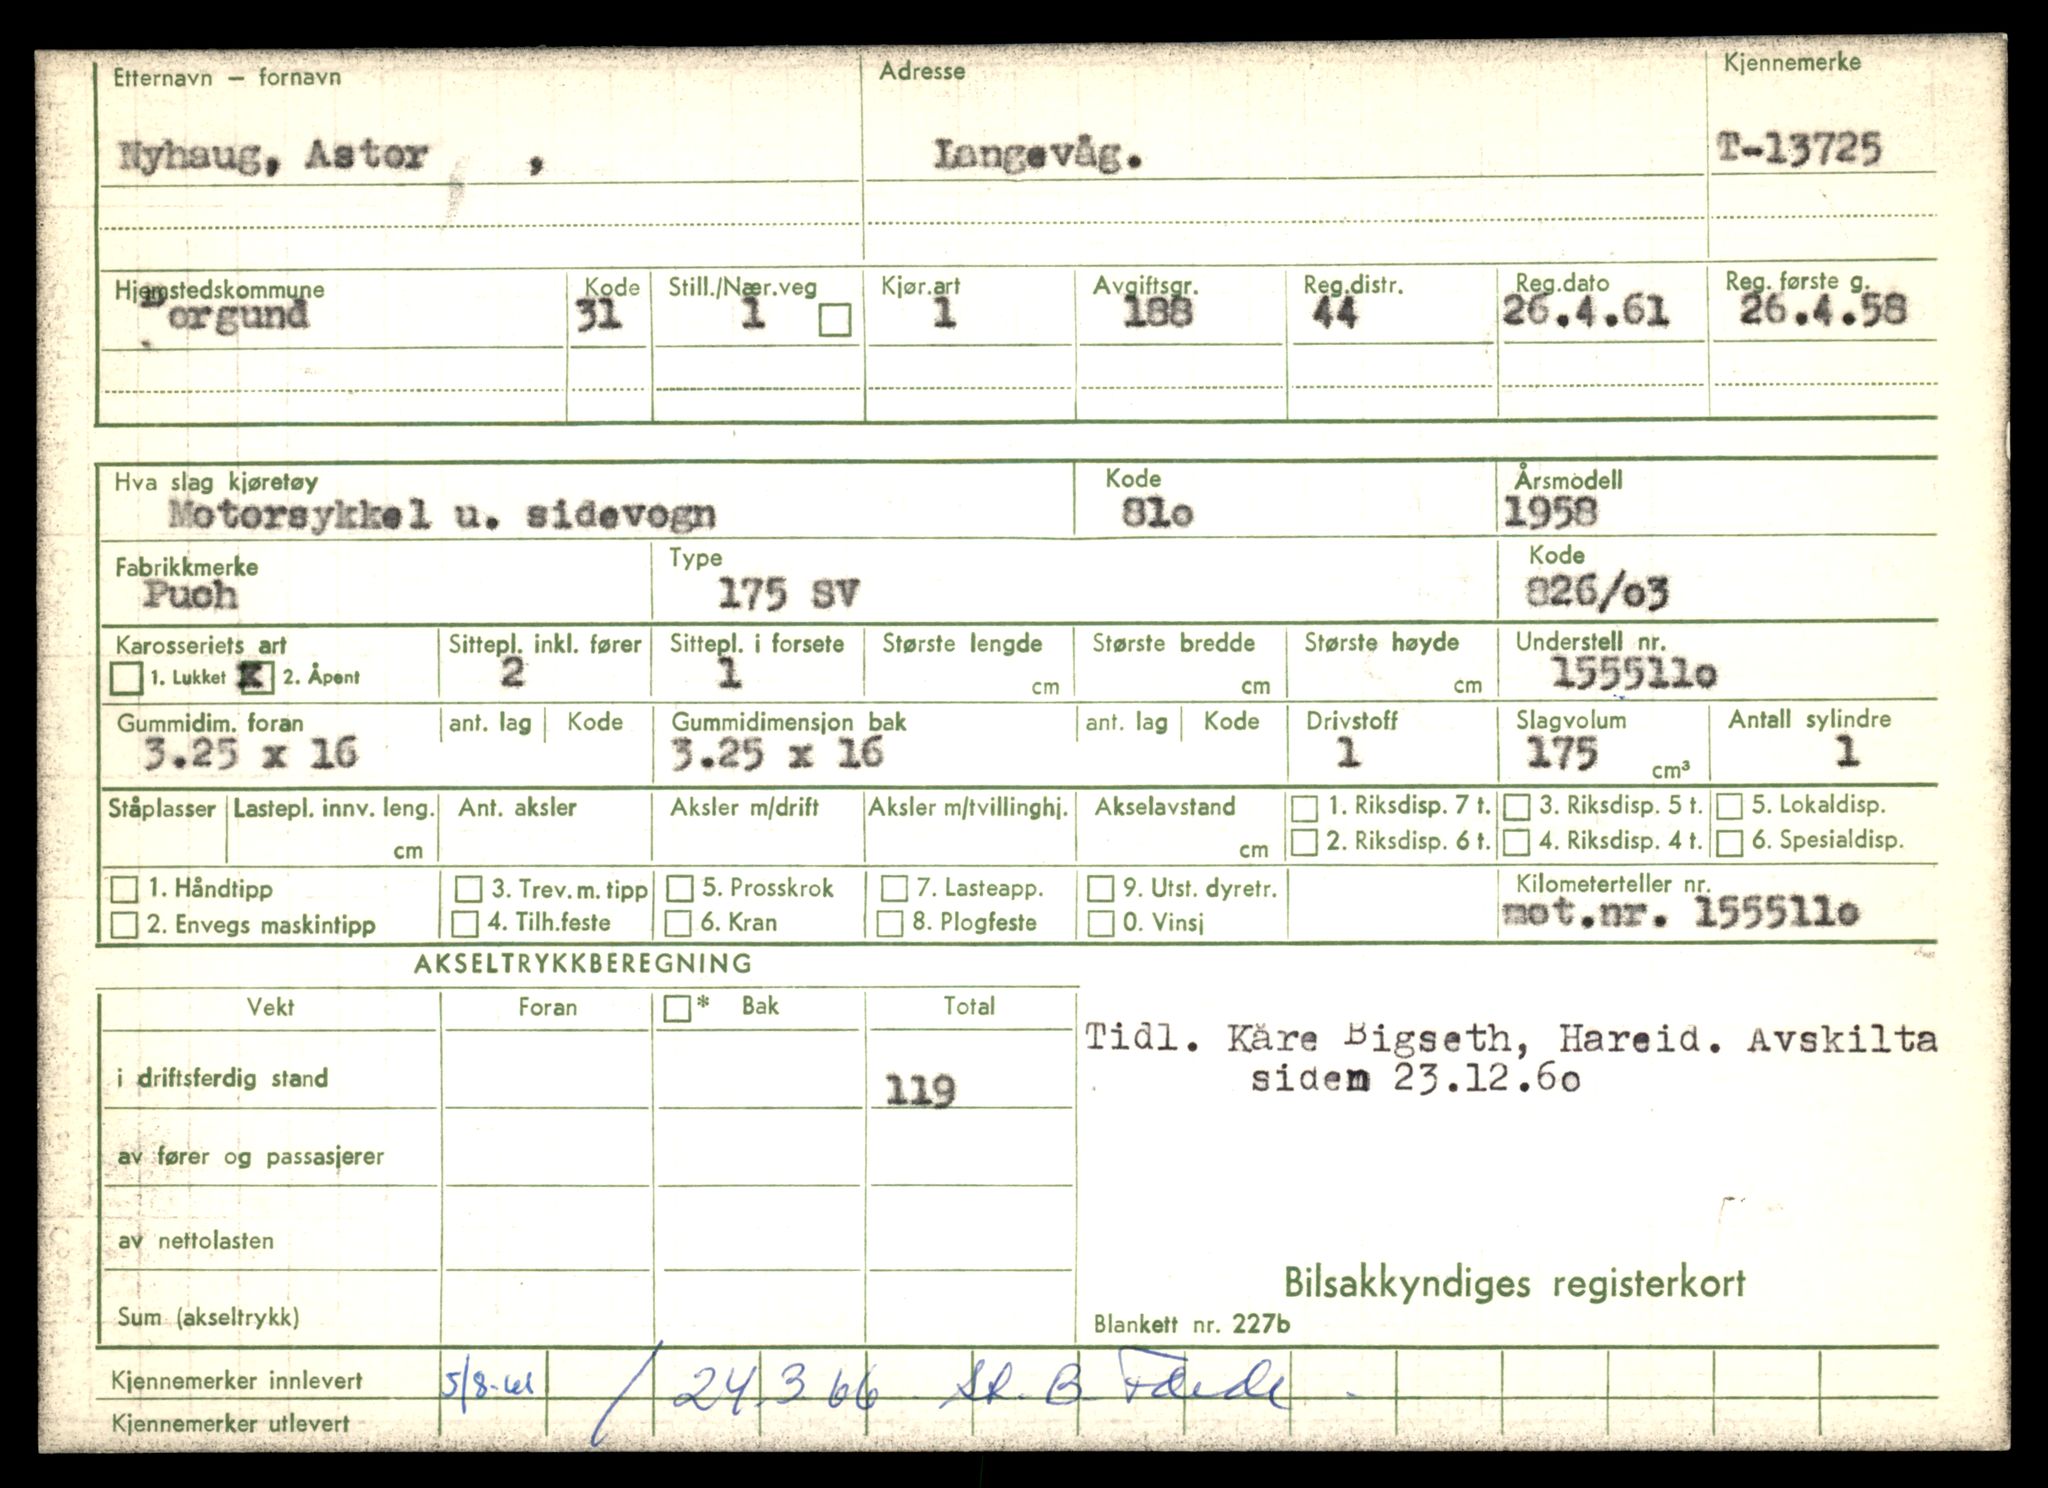 Etternavn — fornavn Adresse Kjennemerke
Nyhaug, Astor , Langevåg. T-13725
Hjemstedskommune Kode Still./Nær.veg Kjør.art Avgiftsgr. Reg.distr. Reg.dato Reg. første g.
Borgund 31 1 1 188 44 26.4.61 26.4.58
Hva slag kjøretøy Kode Årsmodell
Motorsykkel u. sidevogn 81o 1958
Fabrikkmerke Type Kode
Puch 175 SV 826/o3
Karosseriets art Sittepl. inkl. fører Sittepl. i forsete Største lengde Største bredde Største høyde Understell nr.
1. Lukket x 2. Åpent 2 1 cm cm cm 155511o
Gummidim. foran ant. lag Kode Gummidimensjon bak ant. lag Kode Drivstoff Slagvolum Antall sylindre
3.25 x 16 3.25 x 16 1 175 cm³ 1
Ståplasser Lastepl. innv. leng. Ant. aksler Aksler m/drift Aksler m/tvillinghj. Akselavstand 1. Riksdisp. 7 t. 3. Riksdisp. 5 t. 5. Lokaldisp.
cm cm 2. Riksdisp. 6 t. 4. Riksdisp. 4 t. 6. Spesialdisp.
1. Håndtipp 3. Trev. m. tipp 5. Prosskrok 7. Lasteapp. 9. Utst. dyretr. Kilometerteller nr.
2. Envegs maskintipp 4. Tilh.feste 6. Kran 8. Plogfeste 0. Vinsj mot.nr. 155511o
AKSELTRYKKBEREGNING
Vekt Foran * Bak Total
Tidl. Kåre Bigseth, Hareid. Avskilta
i driftsferdig stand 119 siden 23.12.6o
av fører og passasjerer
av nettolasten
Bilsakkyndiges registerkort
Sum (akseltrykk) Blankett nr. 227b
Kjennemerker innlevert 5/8-61 / 24.3 66 B
Kjennemerker utlevert